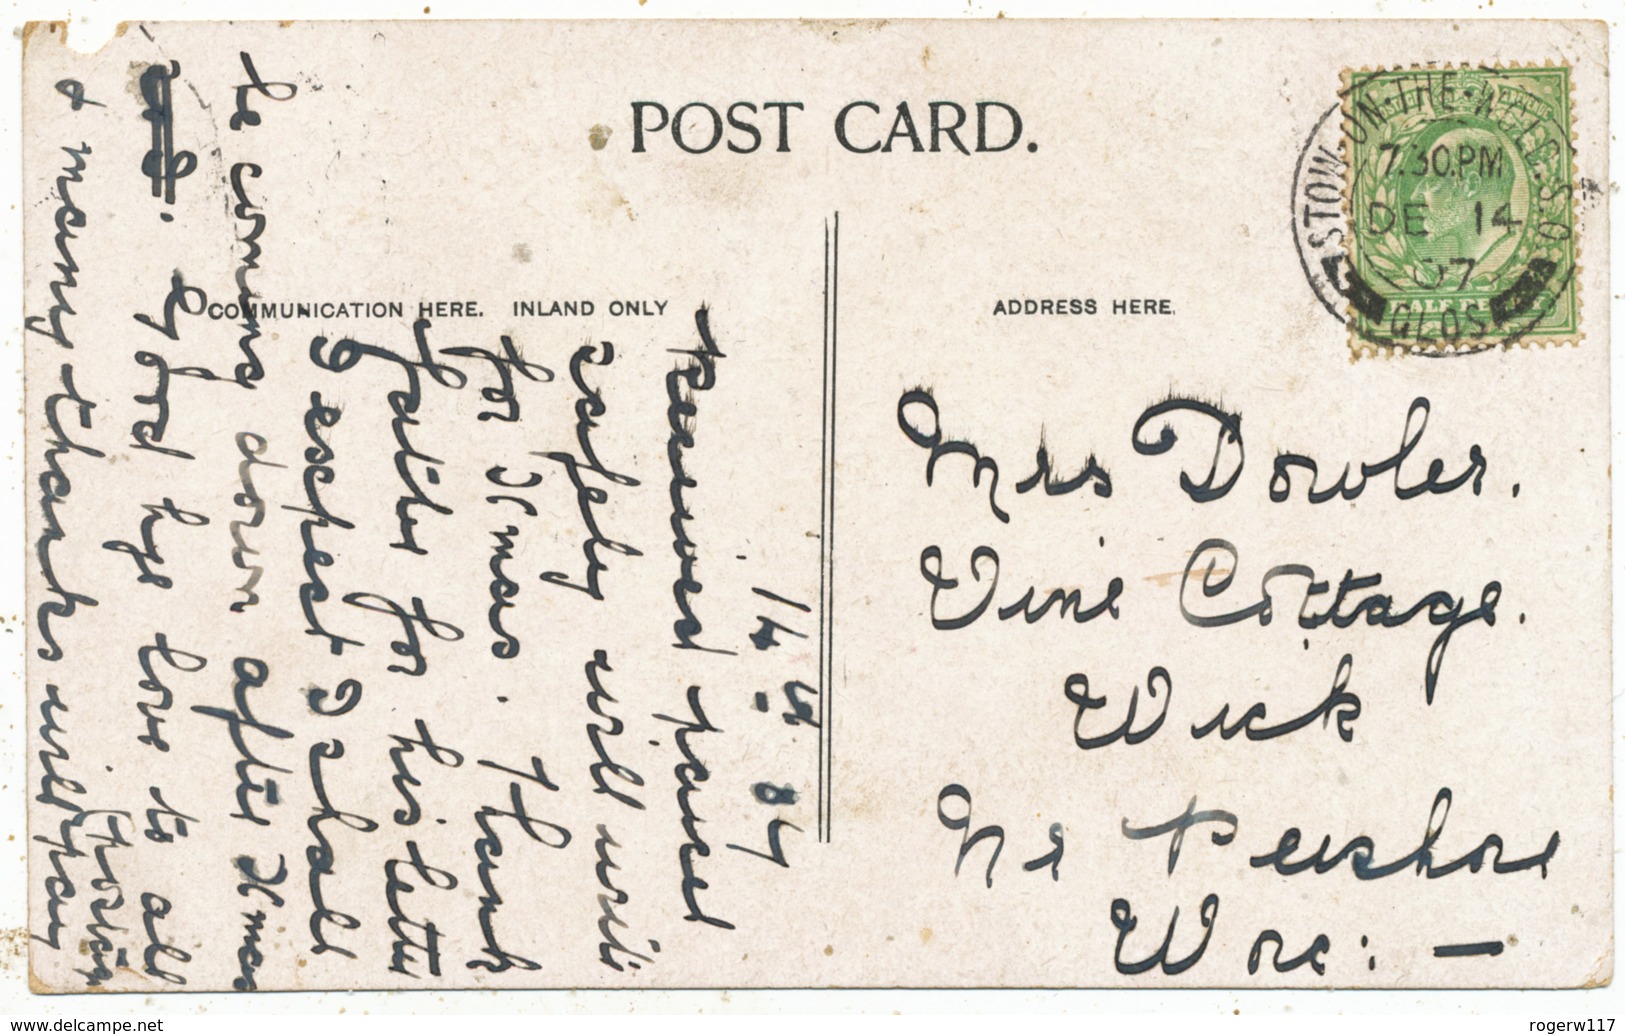 POST CARD.
COMMUNICATION HERE. INLAND ONLY
ADDRESS HERE.
STOW-ON-THE-WOLD. S.O.
7.30.PM
DE 14
07
GLOS
HALF PE
14th 07
Received parcel
safely will write
for Xmas. Thank
Father for his letter
I expect I shall
be coming down after Xmas
Good bye love to all
& many thanks will pay
Mrs Dowler.
Vine Cottage.
Wick
Nr Pershore
Worc: —
delcampe.net
rogerw117